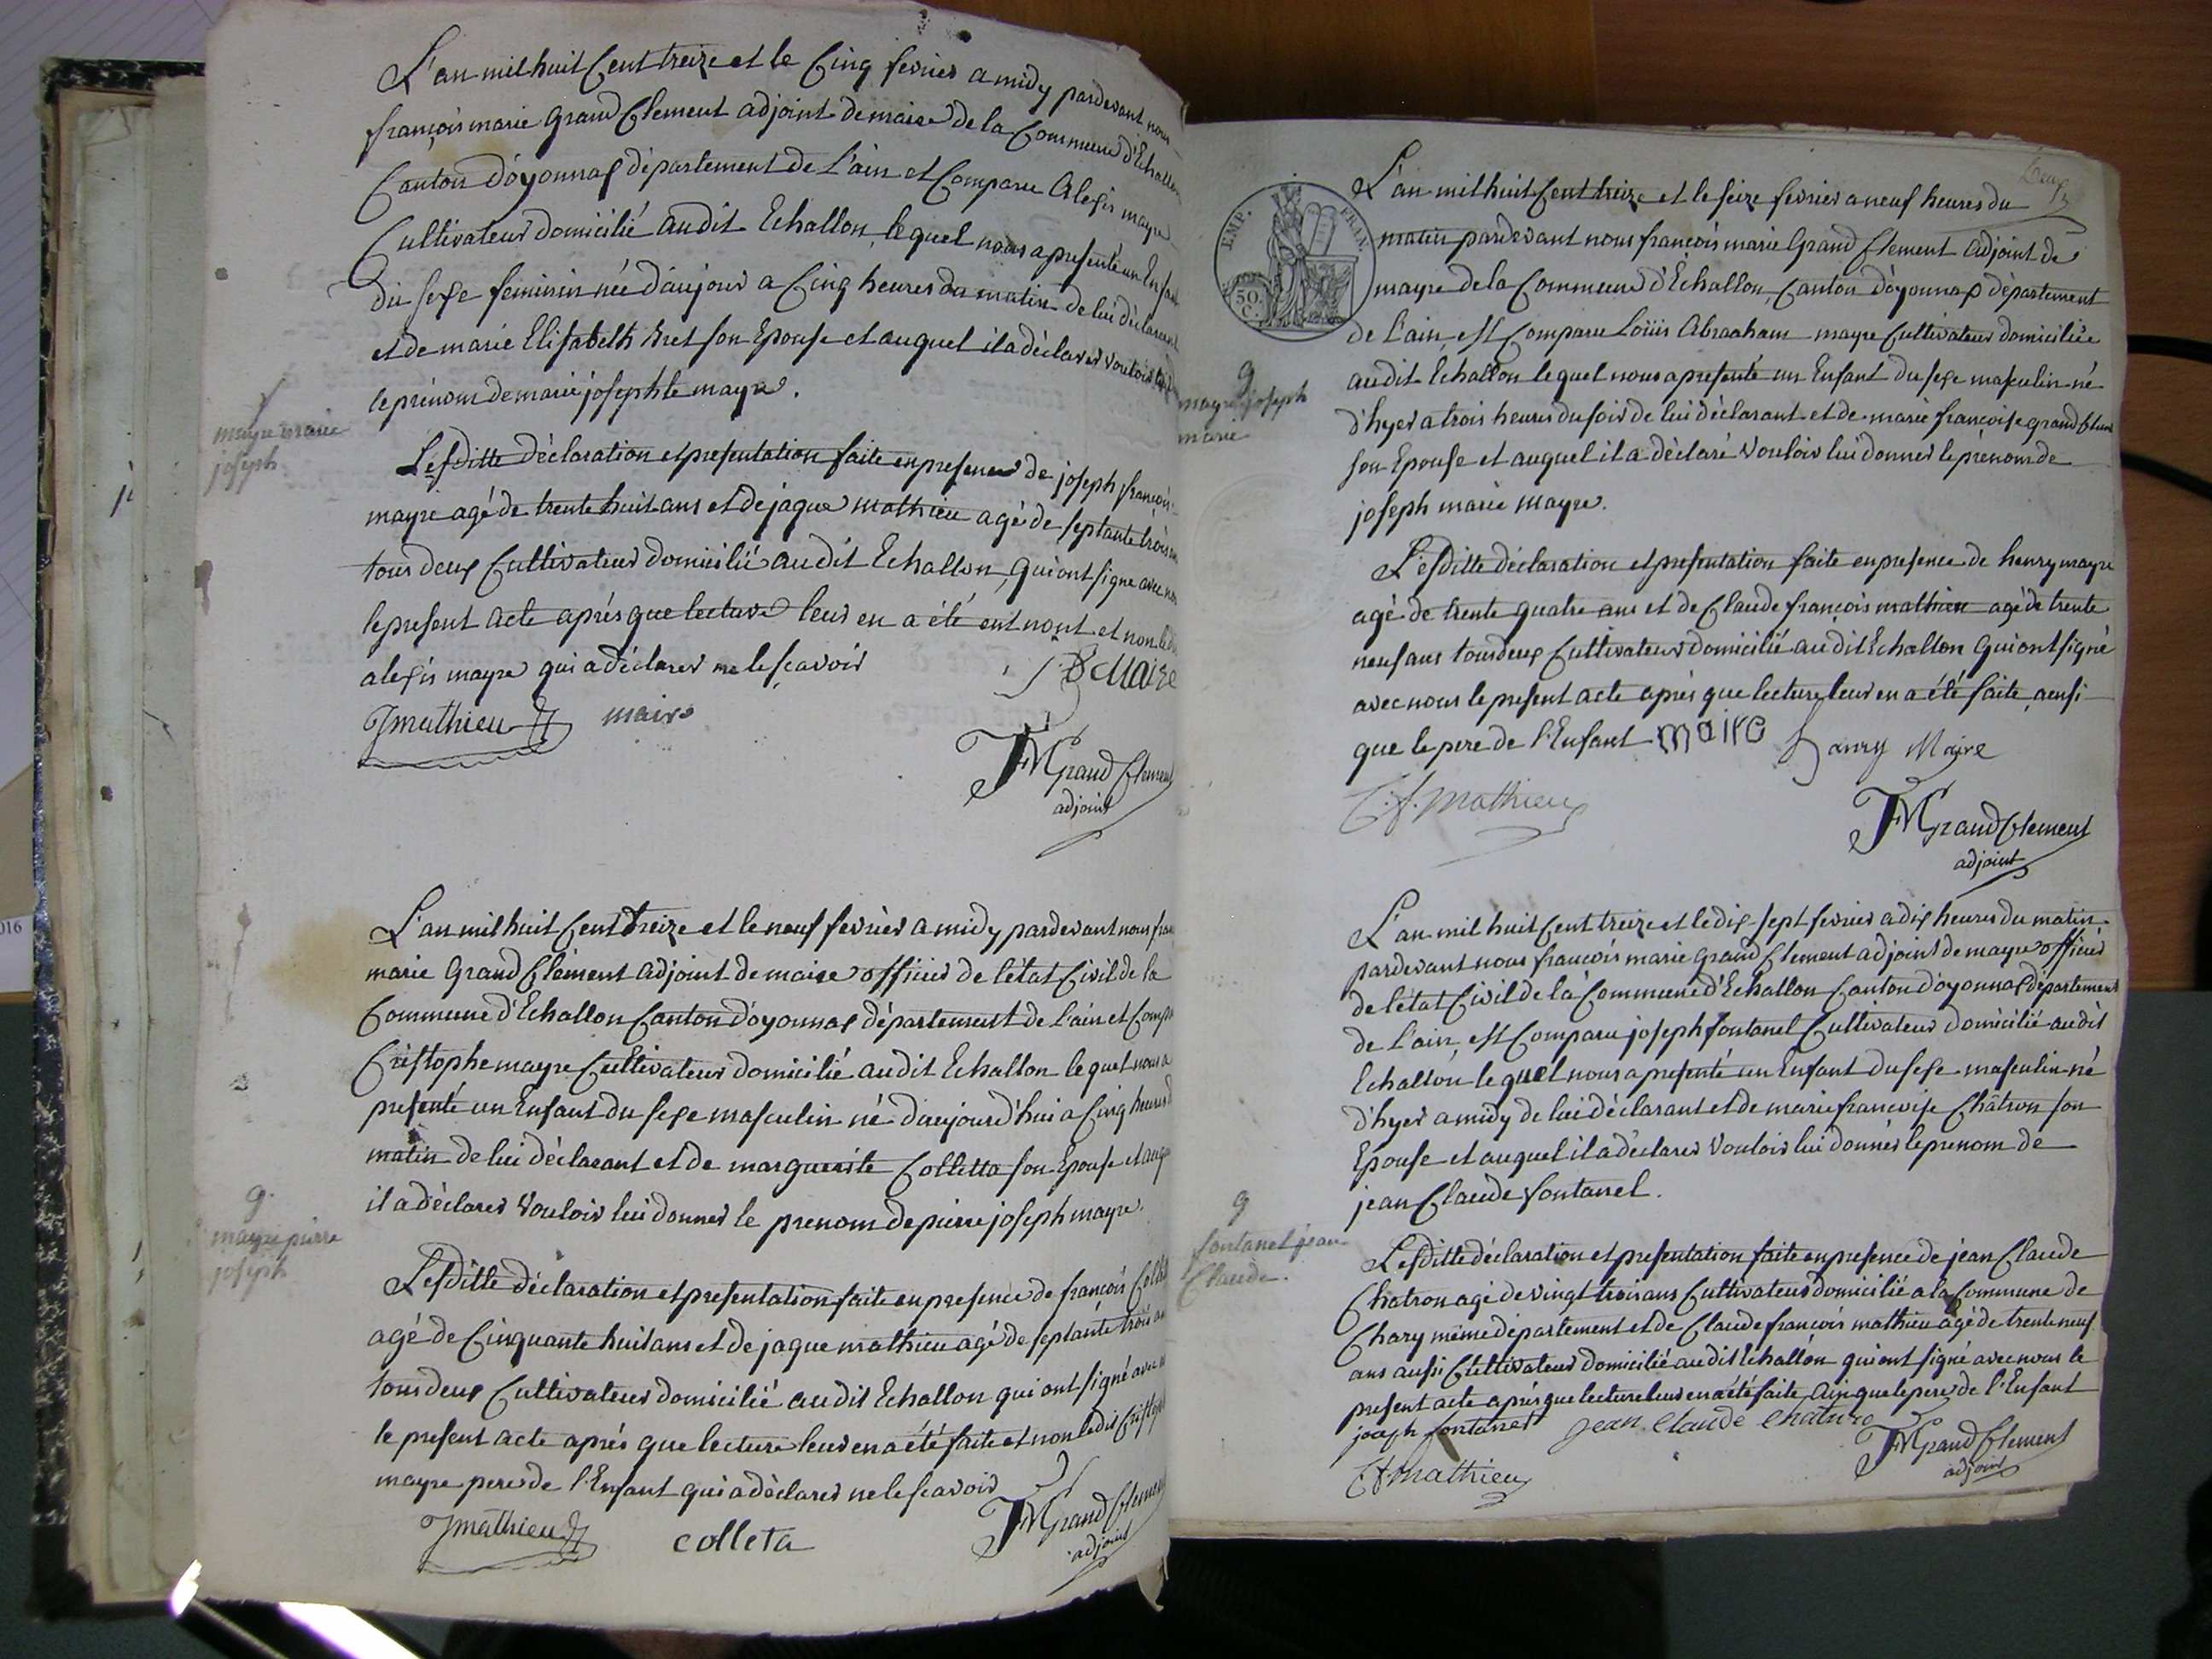 L'an mil huit Cent treize et le Cinq fevrier a midy pardevant nous
françois marie Grand Clement adjoint de maire de la Commune d'Echallon
Canton d'oyonnax département de l'ain et Comparu Alexis mayre
Cultivateur domicilié audit Echallon, lequel nous a presenté un Enfant
du sexe feminin née d'aujour a Cinq heures du matin de lui déclarant
et de marie Elisabeth Bret son Epouse et auquel il a déclarer vouloir
le prénom de marie josephte mayre.
Lesditte déclaration et presentation faite en presence de joseph françois
mayre agé de trente huit ans et de jaque mathieu agé de septante trois
tous deux Cultivateur domicilié audit Echallon, qui ont signé avec nous
le present acte aprés que lecture leur en a été ent nont et non ledit
alexis mayre qui a déclarer ne le scavoir
mayre marie
joseph
Jmathieu maire
Maire
FMGrand Clement
adjoint
L'an mil huit Cent treize et le neuf fevrier a midy pardevant nous
marie Grand Clément adjoint de maire officier de l'état Civil de la
Commune d'Echallon Canton d'oyonnax département de l'ain et
Cristophe mayre Cultivateur domicilié audit Echallon lequel nous a
presenté un Enfant du sexe masculin né d'aujourd'hui a Cinq heures
matin de lui déclarant et de marguerite Colletta son Epouse et
il a déclarer vouloir lui donner le prenom de pierre joseph mayre.
g.
mayre pierre
joseph
Lesditte déclaration et presentation faite en presence de françois
agé de Cinquante huit ans et de jaque mathieu agé de septante trois
tous deux Cultivateur domicilié audit Echallon qui ont signé avec
le present acte aprés que lecture leur en a été faite et non ledit
mayre pere de l'Enfant qui a déclarer ne le scavoir
Jmathieu colleta
FMGrand Clement
adjoint
EMP. FRAN.
50.
C.
L'an mil huit Cent treize et le seize fevrier a neuf heures du
matin pardevant nous françois marie Grand Clement Adjoint de
mayre de la Commune d'Echallon, Canton d'oyonnax département
de l'ain, est Comparu Loüis Abraaham mayre Cultivateur domiciliée
audit Echallon lequel nous a presenté un Enfant du sexe masculin né
d'hyer a trois heures du soir de lui déclarant et de marie françoise grand Clem
son Epouse et auquel il a déclaré vouloir lui donner le prénom de
joseph marie mayre.
g
mayre joseph
marie
Lesditte déclaration et presentation faite en presence de henry mayre
agé de trente quatre ans et de Claude françois mathieu agé de trente
neuf ans tous deux Cultivateur domicilié audit Echallon qui ont signé
avec nous le present acte aprés que lecture leur en a été faite, aensi
que le pere de l'Enfant maire hanry Maire
C.f. mathieu
FMGrand Clement
adjoint
L'an mil huit Cent treize et le dix-sept fevrier a dix heures du matin
pardevant nous françois marie Grand Clement adjoint de mayre officier
de l'état Civil de la Commune d'Echallon Canton d'oyonnax département
de l'ain, est Comparu joseph fontanel Cultivateur domicilié audit
Echallon lequel nous a presenté un Enfant du sexe masculin né
d'hyer a midy de lui déclarant et de marie francoise Châtron son
Epouse et auquel il a déclarer vouloir lui donner le prenom de
jean Claude fontanel.
g
fontanel jean
Claude.
Lesditte déclaration et presentation faite en presence de jean Claude
Chatron agé de vingt trois ans Cultivateur domicilié a la Commune de
Chary même département et de Claude françois mathieu agé de trente neuf
ans aussi Cultivateur domicilié audit Echallon qui ont signé avec nous le
present acte aprés que lecture leur en a été faite, ainque le pere de l'Enfant
joseph fontanel jean Claude Chatiro
C f mathieu
FMGrand Clement
adjoint